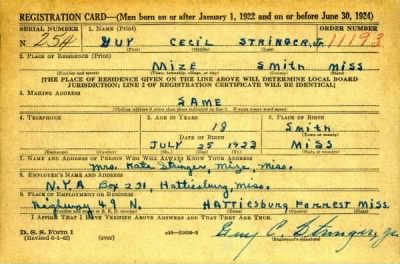 REGISTRATION CARD—(Men born on or after January 1, 1922 and on or before June 30, 1924)
SERIAL NUMBER 1. NAME (Print) ORDER NUMBER
N 254 GUY CECIL STRINGER, Jr. 11193
(First) (Middle) (Last)
2. PLACE OF RESIDENCE (Print)
MIZE SMITH MISS
(Number and street) (Town, township, village, or city) (County) (State)
[THE PLACE OF RESIDENCE GIVEN ON THE LINE ABOVE WILL DETERMINE LOCAL BOARD
JURISDICTION; LINE 2 OF REGISTRATION CERTIFICATE WILL BE IDENTICAL]
3. MAILING ADDRESS
SAME
(Mailing address if other than place indicated on line 2. If same insert word same)
4. TELEPHONE 5. AGE IN YEARS 6. PLACE OF BIRTH
18 Smith
DATE OF BIRTH (Town or county)
JULY 25 1923 MISS
(Exchange) (Number) (Mo.) (Day) (Yr.) (State or country)
7. NAME AND ADDRESS OF PERSON WHO WILL ALWAYS KNOW YOUR ADDRESS
Mrs. Kate Stringer, Mize, Miss.
8. EMPLOYER'S NAME AND ADDRESS
N.Y.A Box 231, Hattiesburg, Miss.
9. PLACE OF EMPLOYMENT OR BUSINESS
Highway 49 N. HATTIESBURG FORREST MISS.
(Number and street or R. F. D. number) (Town) (County) (State)
I AFFIRM THAT I HAVE VERIFIED ABOVE ANSWERS AND THAT THEY ARE TRUE.
D. S. S. Form 1
(Revised 6-9-42) Guy C. Stringer, Jr.
(Registrant's signature)